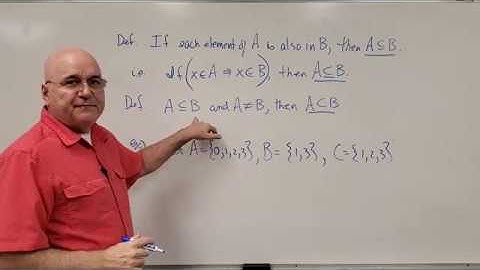 Def. If each element of A is also in B, then A⊆B.
i.e. If (x∈A ⇒ x∈B), then A⊆B.
Def A⊆B and A≠B, then A⊂B
A={0,1,2,3}, B={1,3}, C={1,2,3}